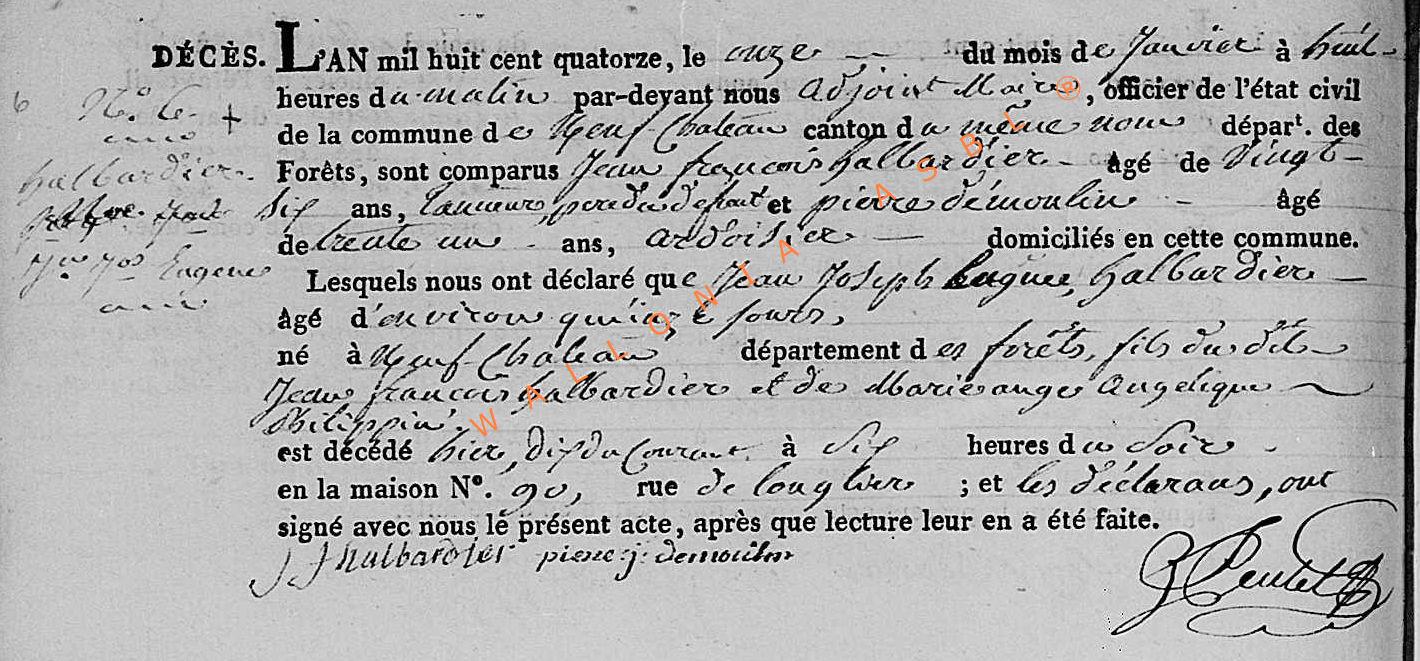 DÉCÈS. L'AN mil huit cent quatorze, le onze du mois de Janvier à huit
heures du matin par-devant nous adjoint Maire, officier de l'état civil
de la commune de Neuf-Chateau canton du même nom départ. des
Forêts, sont comparus Jean françois halbardier âgé de Vingt-
Six ans, tanneur, pere du defunt et pierre démoulin âgé
de trente un ans, ardoisier domiciliés en cette commune.
Lesquels nous ont déclaré que Jean Joseph Eugene, halbardier
âgé d'environ quinze jours,
né à Neuf-Chateau département des forêts, fils du dit
Jean françois halbardier et de Marie ange Angelique
Philippin.
est décédé hier, dix du Courant à Six heures du Soir
en la maison N°. 90, rue de longlier ; et les déclarans, ont
signé avec nous le présent acte, après que lecture leur en a été faite.
J J halbardier pierre j. demoulin
6
N.° 6
+
halbardier.
Eugene
WALLONIA ASBL
@